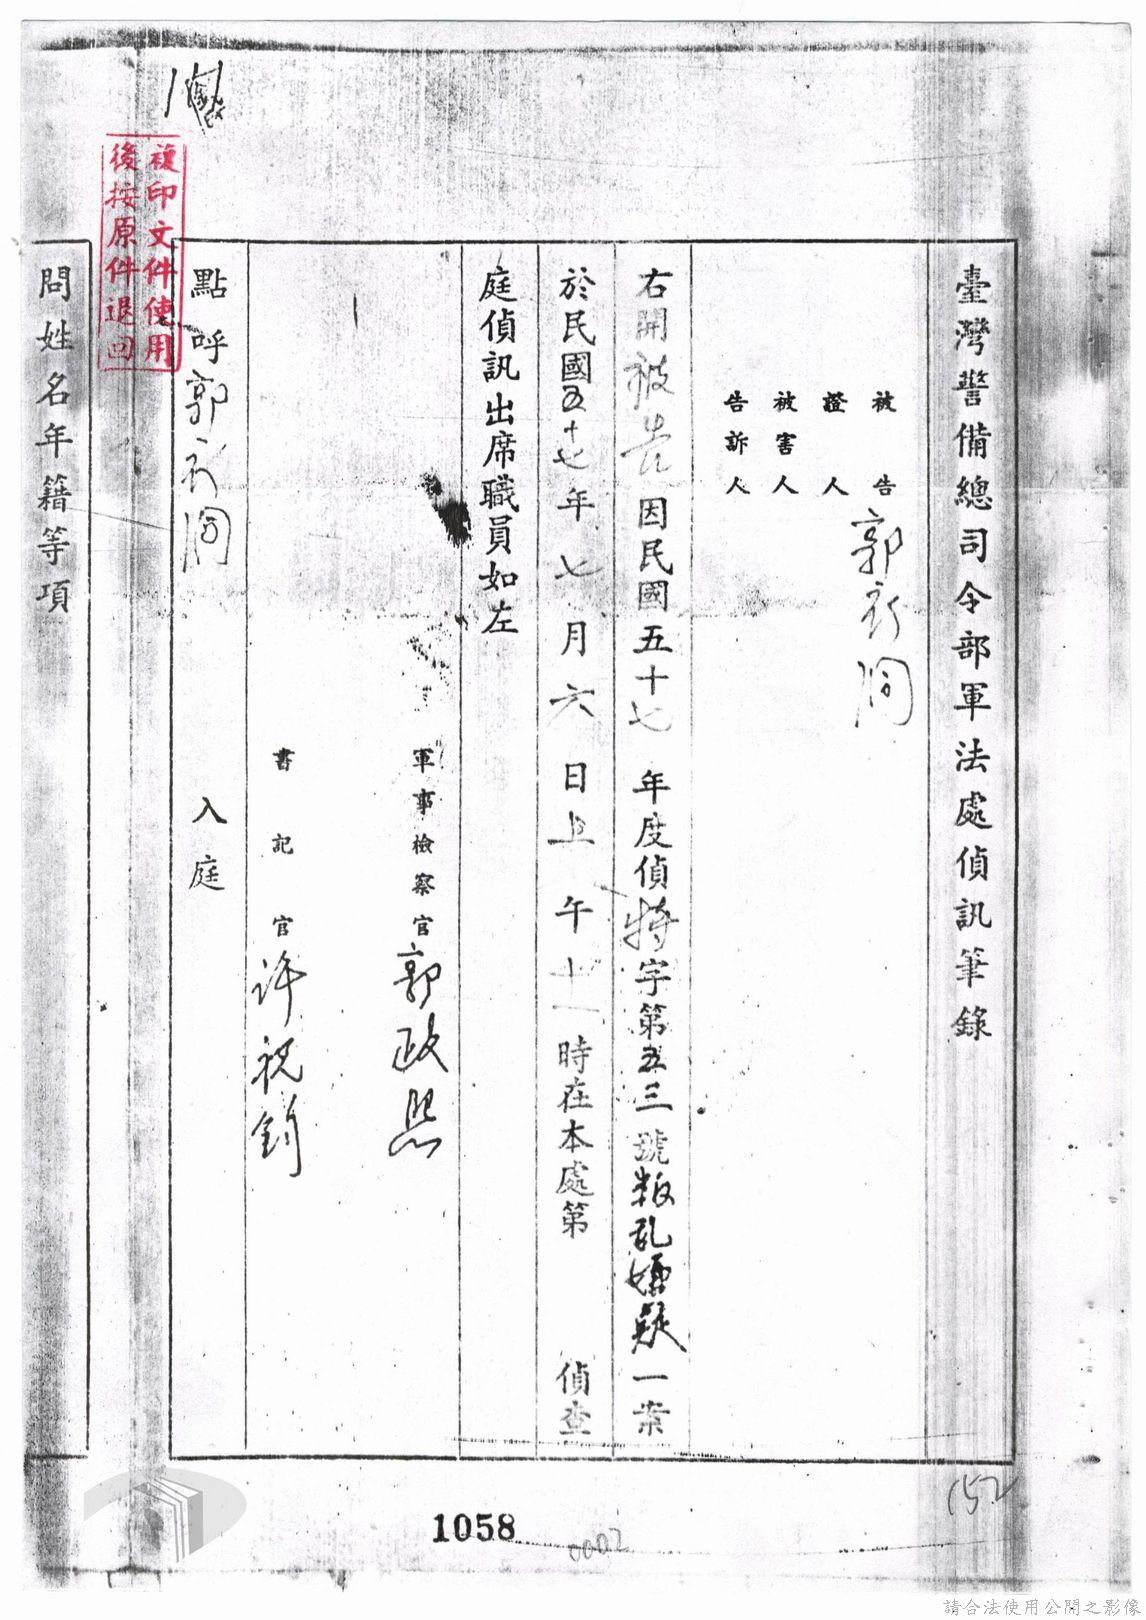 臺灣警備總司令部軍法處偵訊筆錄
被告 郭衣洞
證人
被害人
告訴人
右開被告因民國五十七年度偵特字第五三號叛乱嫌疑一案
於民國五十七年七月六日上午十一時在本處第 偵查
庭偵訊出席職員如左
軍事檢察官 郭政熙
書記官 許祝鈞
點呼郭衣洞 入庭
問姓名年籍等項
複印文件使用
後按原件退回
152
1058
0002
請合法使用公開之影像